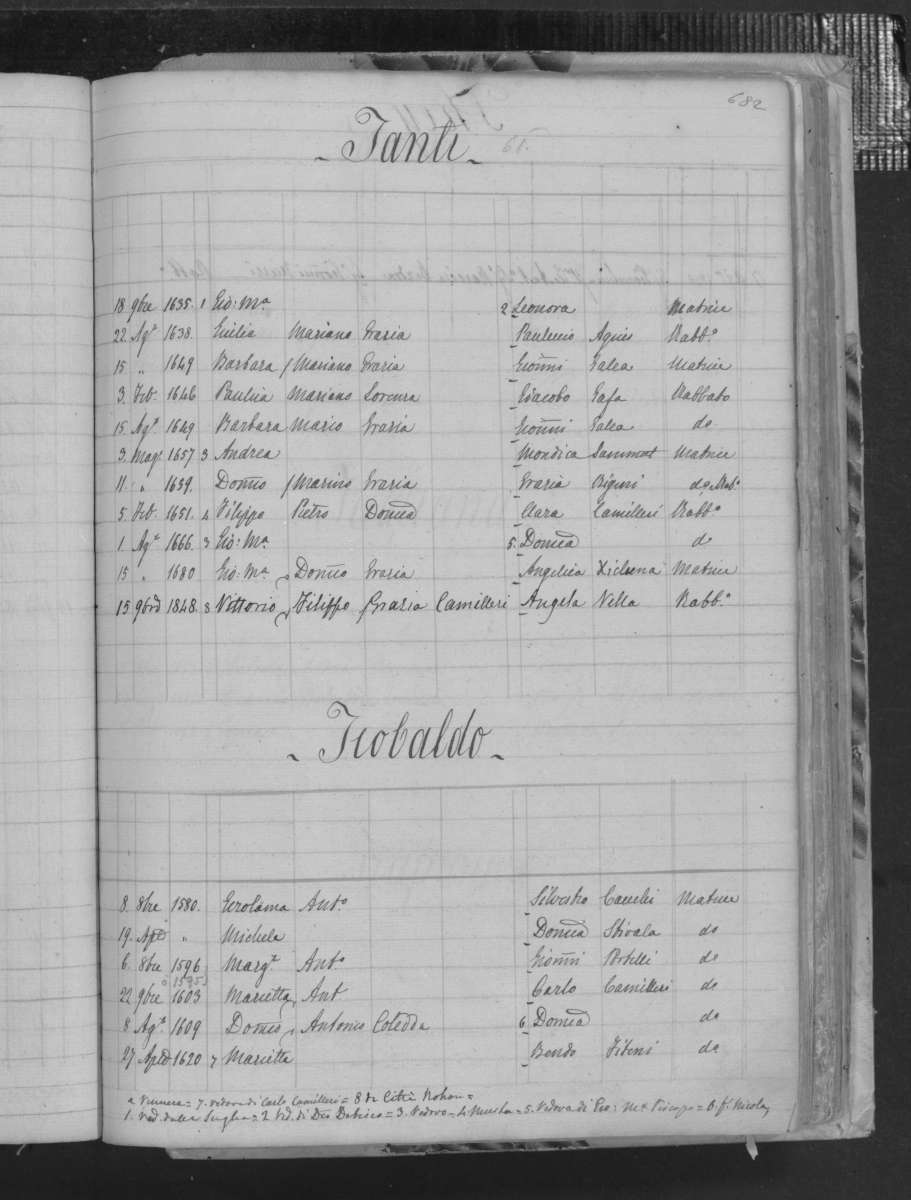 682
Tanti
61.
18 9bre 1635. 1 Gio: Ma 2 Leonora Matrice
22 Agto 1638. Emilia Mariano Grazia Paulucio Agius Rabbo
15 " 1649 Barbara / Mariano Grazia Gioñni Galea Matrice
3. Feb. 1646 Paulica Mariano Lorenza Giacobo Gafa Rabbato
15. Agto 1649 Barbara Mario Grazia Gioñni Galea do
3. Mago 1657 3 Andrea Mondica Sammut Matrice
11. " 1659. Domco / Marino Grazia Grazia do Rabo
5. Feb. 1651. 4 Filippo Pietro Domca Clara Camilleri Rabbo
1 Agto 1666. 3 Gio: Ma 5. Domca do
15 " 1680 Gio: Ma Domco Grazia Angelica Xicluna Matrice
15. 9bre 1848. 8 Vittorio Filippo Grazia Camilleri Angela Vella Rabbo
Teobaldo
8. 8bre 1580. Gerolama Anto Silvestro Matrice
19. Aple " Michela Domca Stivala do
6. 8bre 1596 Margta Anto Gioñni Portelli do
o 1595
22. 9bre 1603 Marietta Ant Carlo Camilleri do
8. Agto 1609 Domco Antonio Coledda 6 Domca do
27 Aple 1620 7 Marietta Bendo do
a Vennera = 7. vedova di Carlo Camilleri = 8 di Città Rohan =
1. Ved. della = 2 Ved. di = 3. Vedovo = 4. Musta = 5. Vedova di Gio: Ma Piscopo = 6. fr Nicola